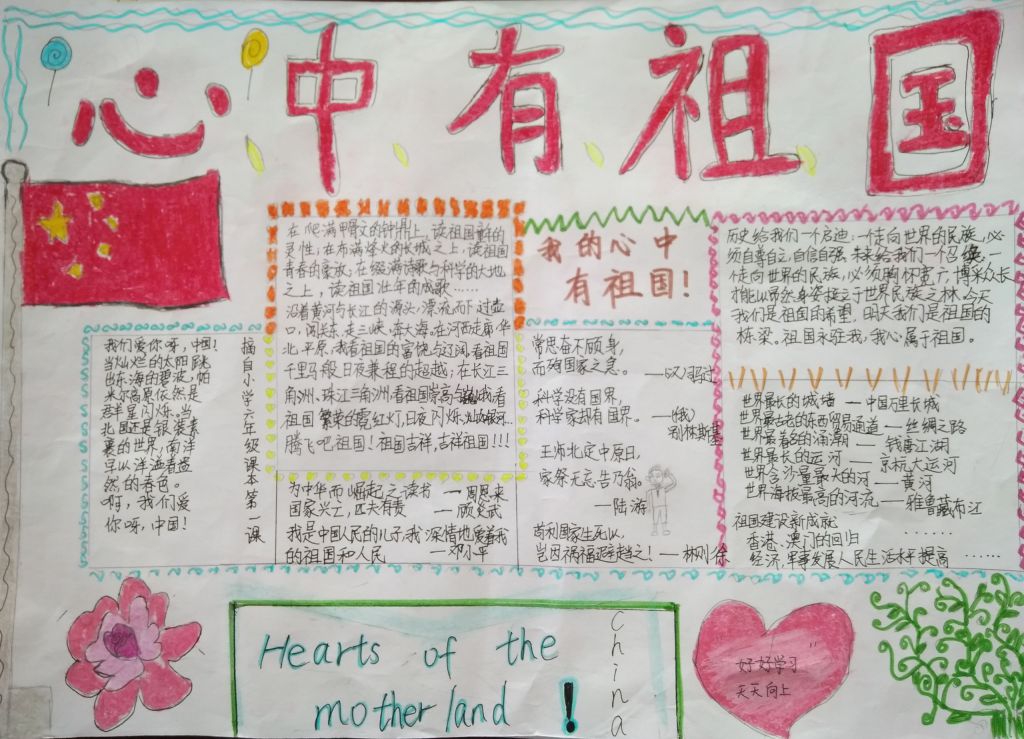 心中有祖国
我们爱你呀,中国!
当灿烂的太阳跳
出东海的碧波,帕
米尔高原依然是
群星闪烁。当
北国还是银装素
裹的世界,南洋
早以洋溢着盎
然的春色。
啊,我们爱
你呀,中国!
摘自小学六年级课本第一课
在爬满甲骨文的钟鼎上,读祖国童年的
灵性;在布满烽火的长城之上,读祖国
青春的豪放;在缀满诗歌与科学的大地
之上,读祖国壮年的成歌……
沿着黄河与长江的源头,漂流而下,过壶
口,闯关东,走三峡,奔大海,在河西走廊,华
北平原,我看祖国的富饶与辽阔,看祖国
千里马般日夜兼程的超越;在长江三
角洲、珠江三角洲,看祖国崇高与巍峨,看
祖国繁荣的霓虹灯,日夜闪烁,灿如银河
腾飞吧祖国!祖国吉祥,吉祥祖国!!!
为中华而崛起之读书 — 周恩来
国家兴亡,匹夫有责 — 顾炎武
我是中国人民的儿子,我深情地爱着我
的祖国和人民 — 邓小平
我的心中
有祖国!
常思奋不顾身,
而殉国家之急。 —司马迁
科学没有国界,
科学家却有国界。 —(俄)
别林斯基
王师北定中原日,
家祭无忘告乃翁。
—陆游
苟利国家生死以,
岂因祸福避趋之! — 林则徐
历史给我们一个启迪:一走向世界的民族,必
须自尊自立,自信自强,未来给我们一个召唤,一
走向世界的民族,必须胸怀宽广,博采众长
才能以昂然身姿挺立于世界民族之林。今天
我们是祖国的希望,明天我们是祖国的
栋梁。祖国永驻我,我心属于祖国。
世界最长的城墙 — 中国万里长城
世界最古老的东西贸易通道 — 丝绸之路
世界最著名的涌潮 — 钱唐江湖
世界最长的运河 — 京杭大运河
世界含沙量最大的河 — 黄河
世界海拔最高的河流 — 雅鲁藏布江
祖国建设新成就
香港、澳门的回归 ……
经济,军事发展人民生活水平提高 ……
Hearts of the
motherland !
China
好好学习
天天向上